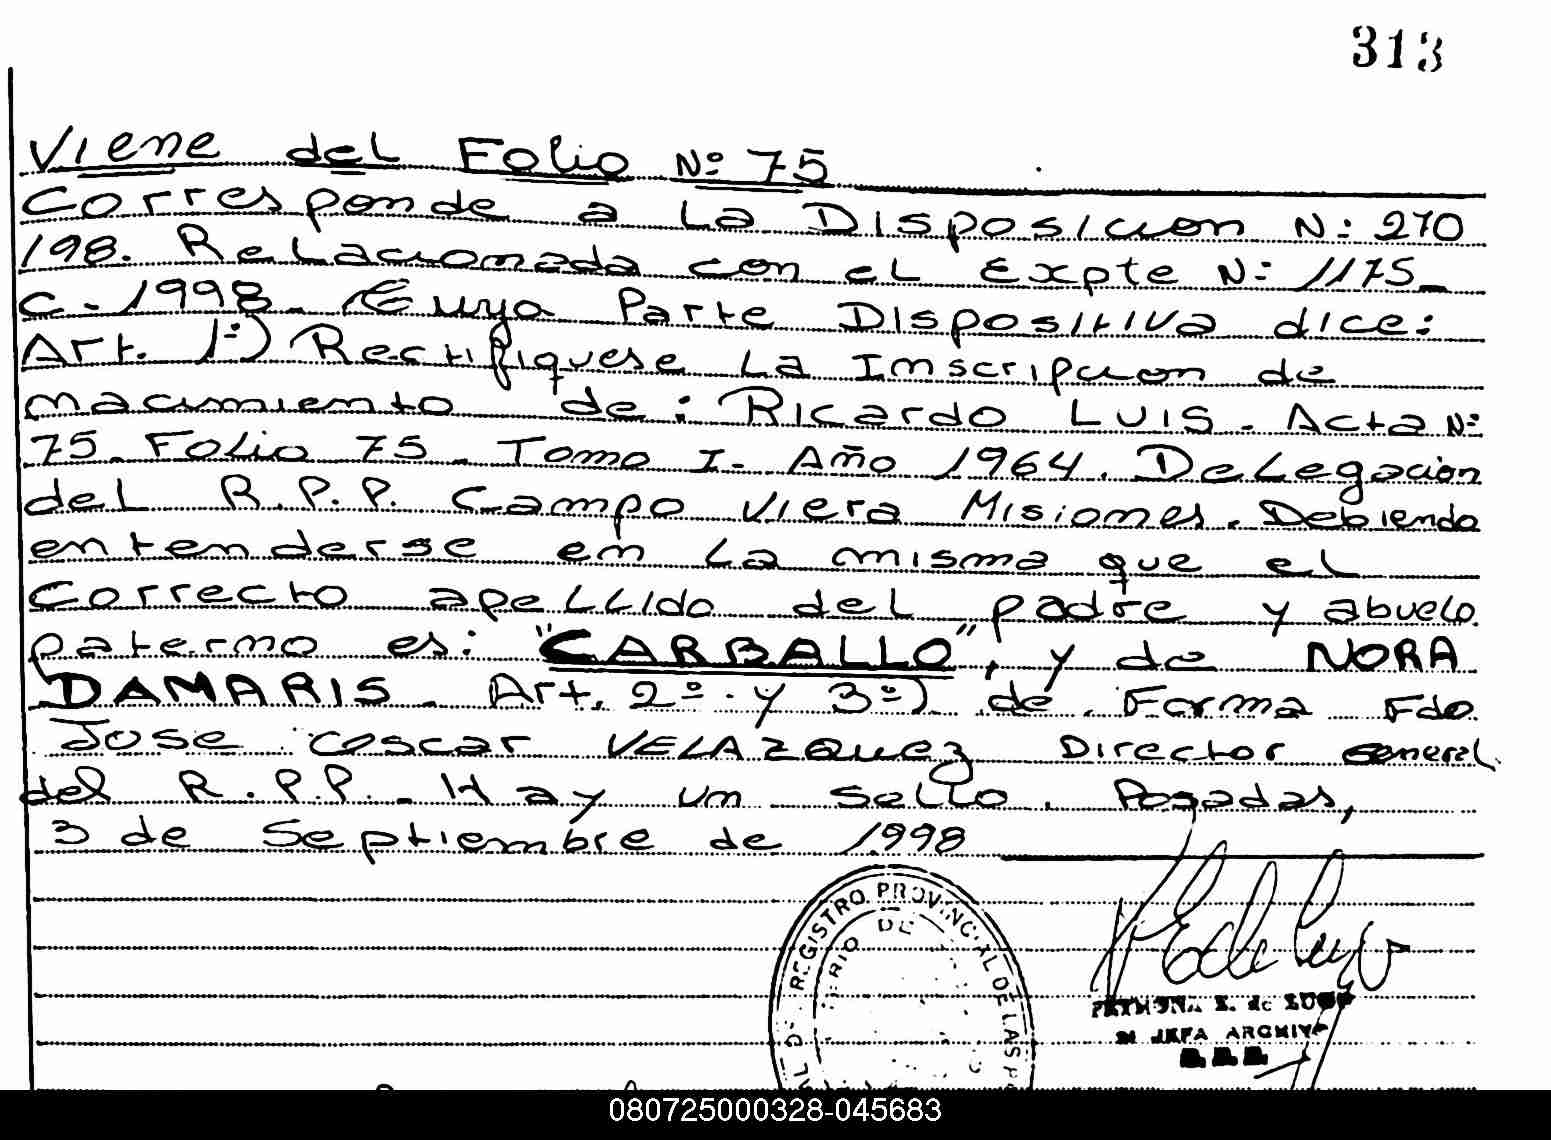 313
Viene del Folio Nº 75
Corresponde a la Disposicion Nº 270
198. Relacionada con el Expte Nº 1175_
C-1998. Cuya Parte Dispositiva dice:
Art. 1º) Rectifiquese la Inscripcion de
nacimiento de: Ricardo Luis. Acta Nº
75. Folio 75. Tomo I. Año 1964. Delegacion
del R.P.P. Campo Viera Misiones. Debiendo
entenderse en la misma que el
Correcto apellido del padre y abuelo
paterno es: "CARBALLO", y de NORA
DAMARIS. Art. 2º. y 3º) de Forma Fdo
Jose Oscar VELAZquez Director General
del R.P.P. Hay un Sello. Posadas,
3 de Septiembre de 1998
REGISTRO PROVINCIAL DE LAS P
DE
E. de LUGO
JEFA ARCHIVO
080725000328-045683